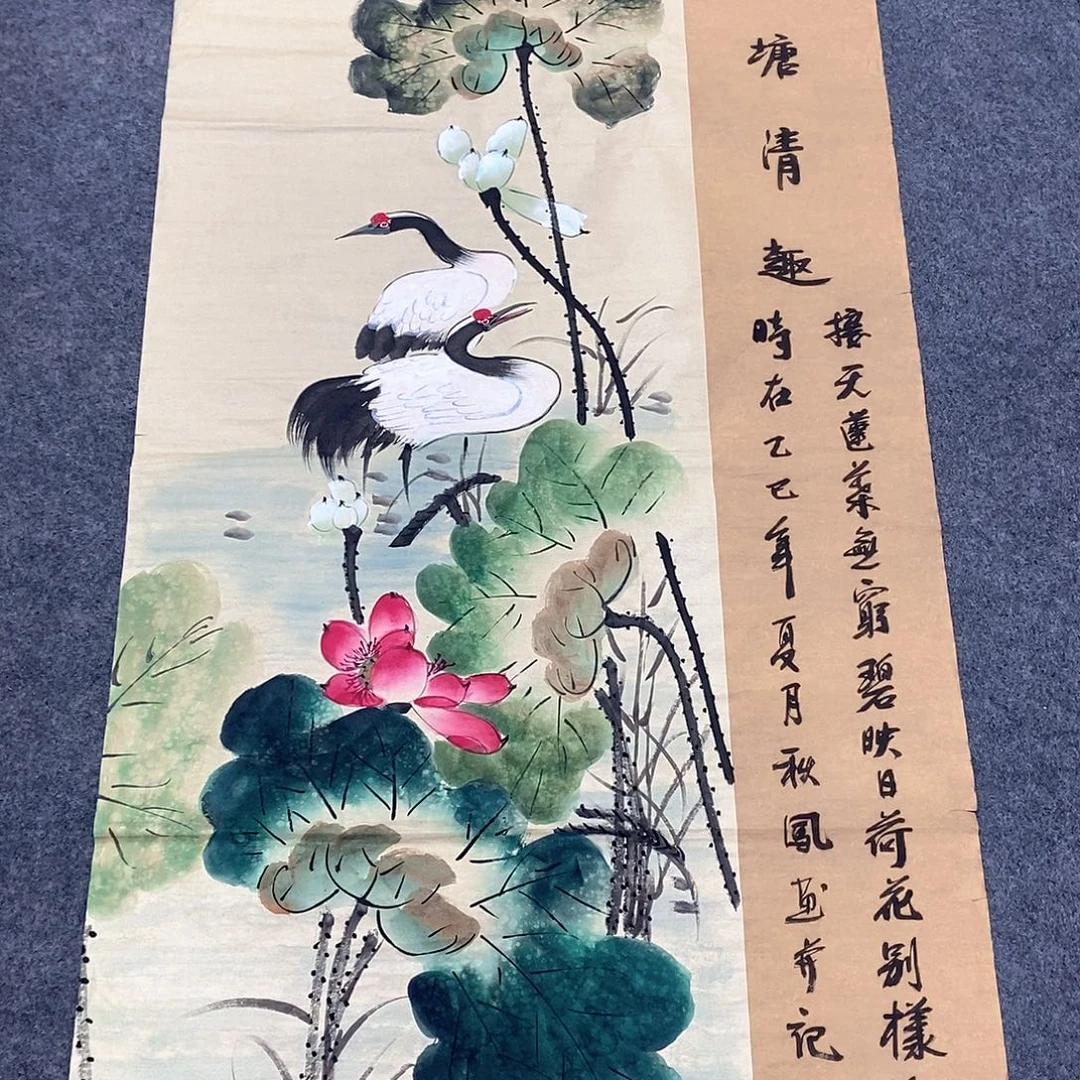 塘清趣
接天蓮葉無窮碧映日荷花别樣
時在乙巳年夏月秋鳳画并记